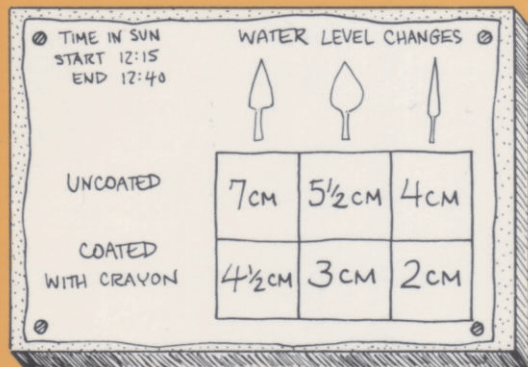 TIME IN SUN
START 12:15
END 12:40
WATER LEVEL CHANGES
UNCOATED
7CM 5½CM 4CM
COATED
WITH CRAYON
4½CM 3CM 2CM